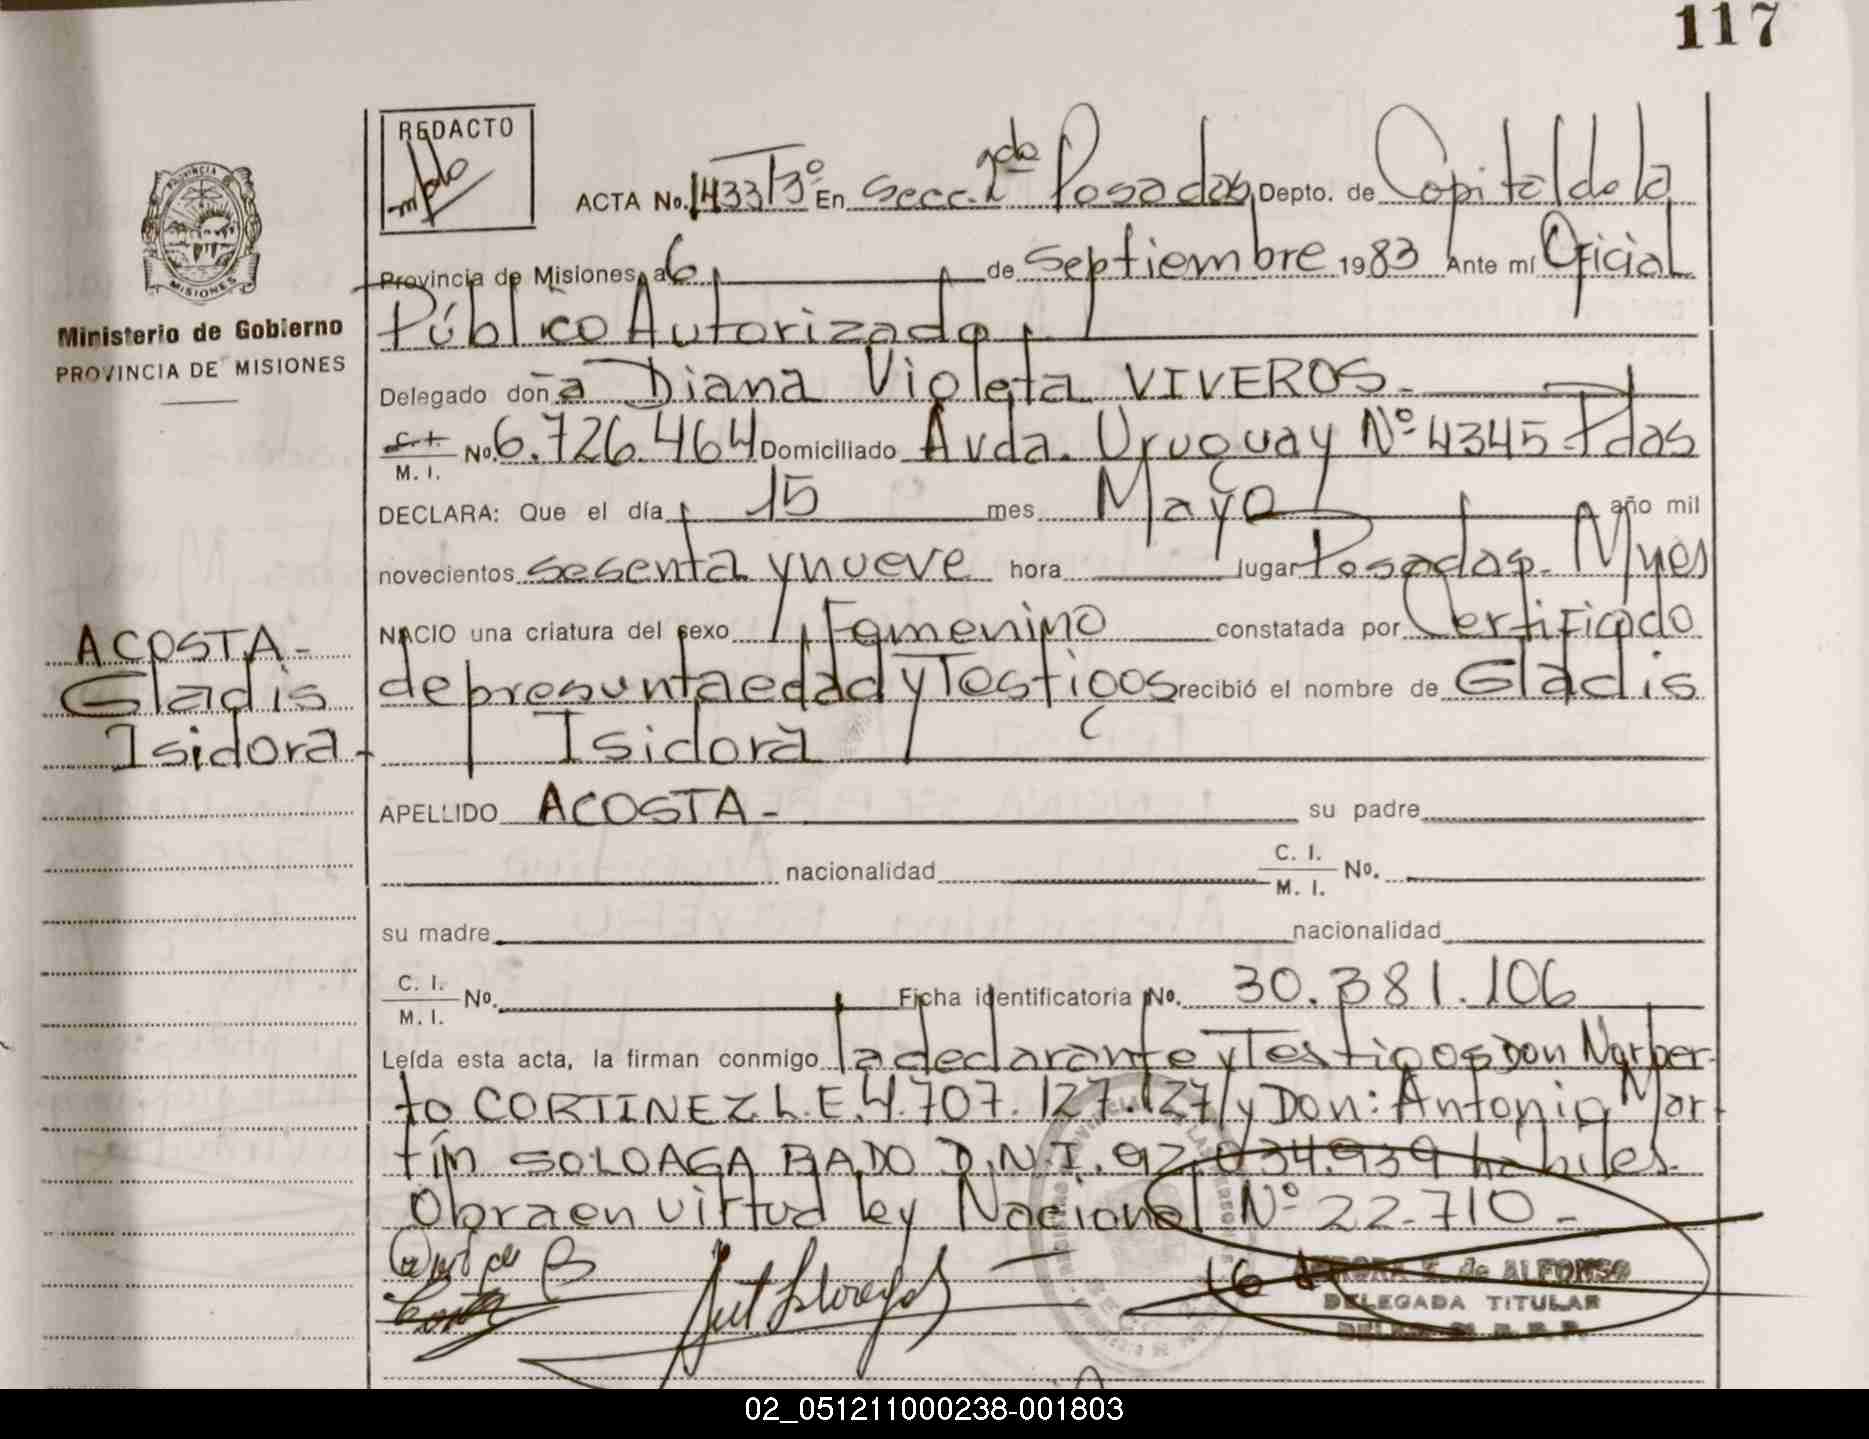 117
REDACTO
ACTA No. 1433 T 3º En Secc. 2da Posadas, Depto. de Capital de la
Provincia de Misiones, a 6 de Septiembre 1983 Ante mí Oficial
Público Autorizado
PROVINCIA
MISIONES
Ministerio de Gobierno
PROVINCIA DE MISIONES
Delegado doña Diana Violeta VIVEROS-
C. I. M. I. No. 6.726.464 Domiciliado Avda. Uruguay Nº 4345-Pdas
DECLARA: Que el día 15 mes Mayo año mil
novecientos sesenta y nueve hora lugar Posadas- Mnes
NACIO una criatura del sexo Femenino constatada por Certificado
de presunta edad y Testigos recibió el nombre de Gladis
Isidora
ACOSTA-
Gladis
Isidora-
APELLIDO ACOSTA- su padre
nacionalidad C. I. M. I. No.
su madre nacionalidad
C. I. M. I. No. Ficha identificatoria No. 30.381.106
Leída esta acta, la firman conmigo la declarante y Testigos Don Norber-
to CORTINEZ L.E. 4.707.127.127/y Don: Antonio Mar-
tín SOLOAGA BADO D.N.I. 92.034.939 hábiles-
Obra en virtud ley Nacional Nº 22.710-
de ALFONSO
DELEGADA TITULAR
02_051211000238-001803